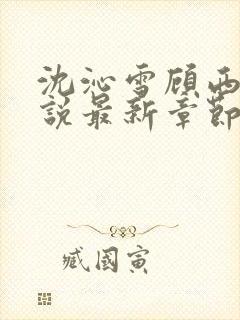 沈沁雪顾西
说最新章节
臧国寅